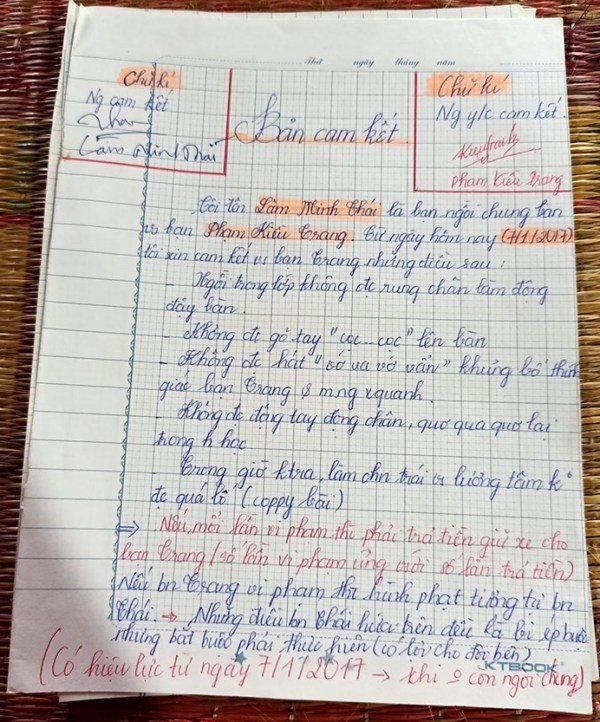 Thứ ngày tháng năm
Chữ kí
Ng cam kết
Lâm Minh Thái
Bản cam kết
Chữ kí
Ng y/c cam kết.
Phạm Kiều Trang
Tôi tên Lâm Minh Thái là bạn ngồi chung bàn
vs bạn Phạm Kiều Trang. Từ ngày hôm nay (7/1/2017)
tôi xin cam kết vs bạn Trang những điều sau:
- Ngồi trong lớp không đc rung chân làm động
đậy bàn.
- Không đc gõ tay "cọc_cọc" lên bàn
- Không đc hát "vớ va vớ vẩn" khủng bố thính
giác bạn Trang & mng xquanh.
- Không đc động tay động chân, quơ qua quơ lại
trong h học
- Trong giờ ktra, làm chn trái vs lương tâm k°
đc quá lố (coppy bài)
⇒ Nếu mỗi lần vi phạm thì phải trả tiền giữ xe cho
bạn Trang (số lần vi phạm ứng với số lần trả tiền)
Nếu bn Trang vi phạm thì hình phạt tương tự bn
Thái. → Những điều bn Thái hứa trên đều là bị ép buộc
nhưng bắt buộc phải thực hiện (có lợi cho đôi bên)
KTBOOK
(Có hiệu lực từ ngày 7/1/2017 → khi 2 còn ngồi chung)